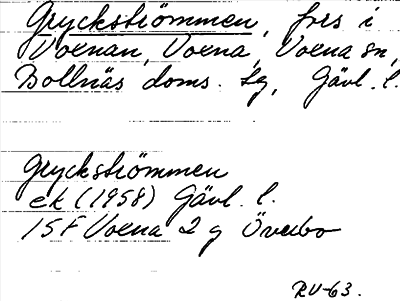 Gryckströmmen, fors i
Voxnan, Voxna, Voxna sn,
Bollnäs doms. sg, Gävl. l.
Gryckströmmen
ek (1958) Gävl. l.
15F Voxna 2 g Överbo
RV-63.